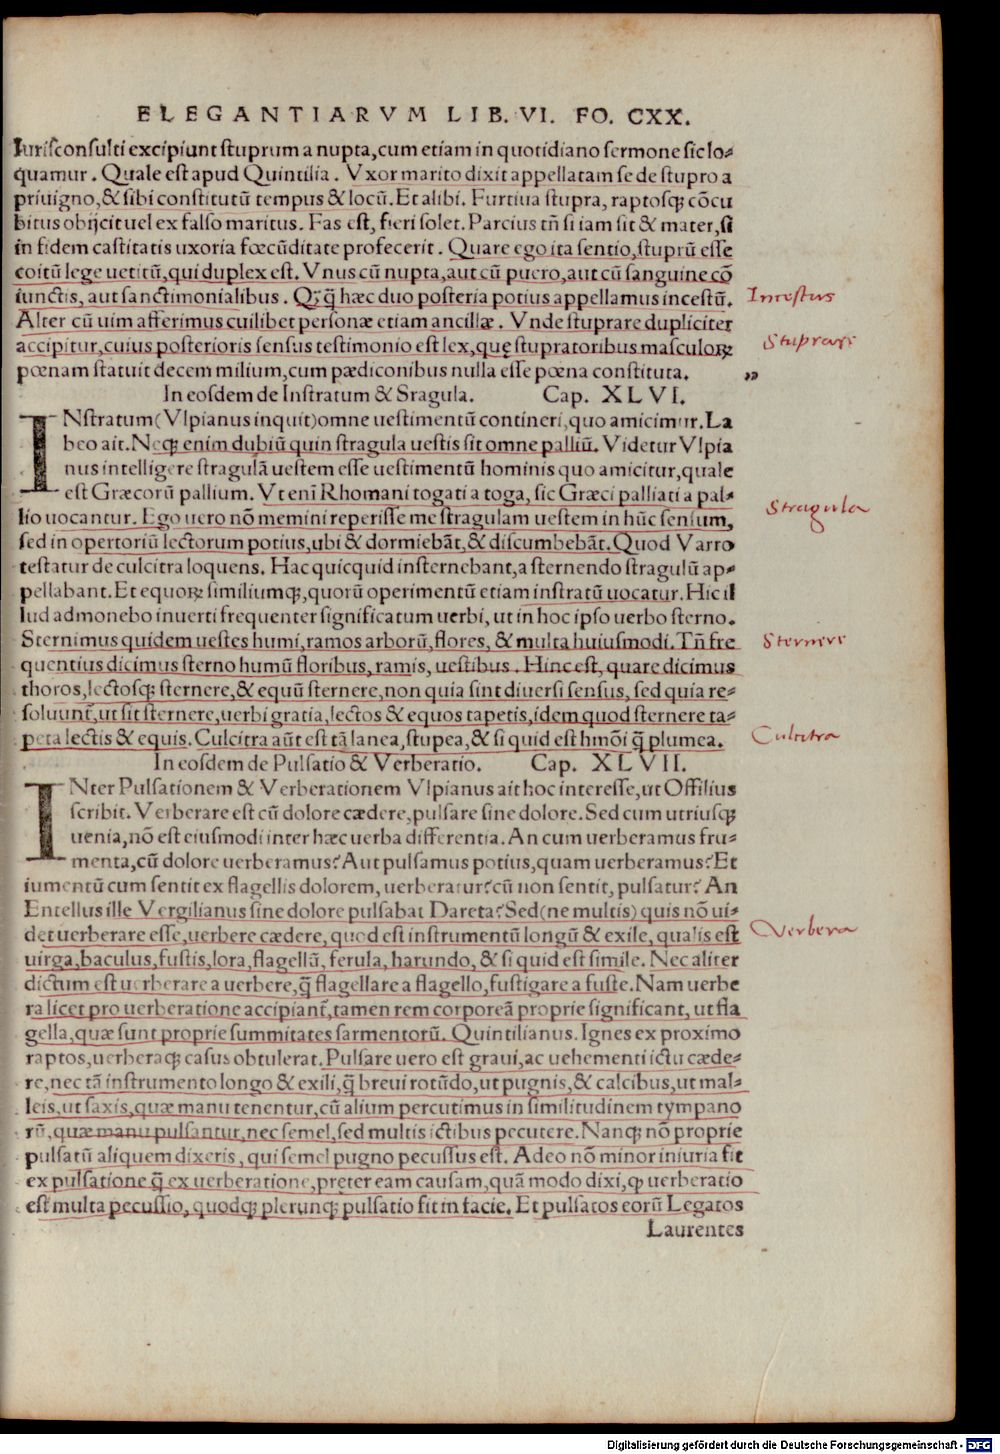 ELEGANTIARVM LIB. VI. FO. CXX.
Iurisconsulti excipiunt stuprum a nupta, cum etiam in quotidiano sermone sic lo-
quamur. Quale est apud Quintilia. Vxor marito dixit appellatam se de stupro a
priuigno, & sibi constitutū tempus & locū. Et alibi. Furtiua stupra, raptosqꝫ cōcu
bitus obijcit uel ex falso maritus. Fas est, fieri solet. Parcius tñ si iam sit & mater, si
in fidem castitatis uxoria fœcūditate profecerit. Quare ego ita sentio, stuprū esse
coitū lege uetitū, qui duplex est. Vnus cū nupta, aut cū puero, aut cū sanguine cō
iunctis, aut sanctimonialibus. Qꝫ q̄ hæc duo posteria potius appellamus incestū.
Incestus
Alter cū uim afferimus cuilibet personæ etiam ancillæ. Vnde stuprare dupliciter
Stuprare
accipitur, cuius posterioris sensus testimonio est lex, quę stupratoribus masculoꝝ
pœnam statuit decem milium, cum pædiconibus nulla esse pœna constituta.
In eosdem de Instratum & Sragula. Cap. XLVI.
INstratum (Vlpianus inquit) omne uestimentū contineri, quo amicimur. La
beo ait. Neqꝫ enim dubiū quin stragula uestis sit omne palliū. Videtur Vlpia
nus intelligere stragulā uestem esse uestimentū hominis quo amicitur, quale
est Græcorū pallium. Vt eni Rhomani togati a toga, sic Græci palliati a pal-
lio uocantur. Ego uero nō memini reperisse me stragulam uestem in hūc sensum,
Stragula
sed in opertoriū lectorum potius, ubi & dormiebāt, & discumbebāt. Quod Varro
testatur de culcitra loquens. Hac quicquid insternebant, a sternendo stragulū ap-
pellabant. Et equoꝝ similiumqꝫ, quorū operimentū etiam instratū uocatur. Hic il
lud admonebo inuerti frequenter significatum uerbi, ut in hoc ipso uerbo sterno.
Sternimus quidem uestes humi, ramos arborū, flores, & multa huiusmodi. Tñ fre
Sternere
quentius dicimus sterno humū floribus, ramis, uestibus. Hinc est, quare dicimus
thoros, lectosqꝫ sternere, & equū sternere, non quia sint diuersi sensus, sed quia re-
soluunt̄, ut sit sternere, uerbi gratia, lectos & equos tapetis, idem quod sternere ta-
peta lectis & equis. Culcitra aūt est tā lanea, stupea, & si quid est hmōi q̄ plumea.
Culcitra
In eosdem de Pulsatio & Verberatio. Cap. XLVII.
INter Pulsationem & Verberationem Vlpianus ait hoc interesse, ut Offilius
scribit. Verberare est cū dolore cædere, pulsare sine dolore. Sed cum utriusqꝫ
uenia, nō est eiusmodi inter hæc uerba differentia. An cum uerberamus fru-
menta, cū dolore uerberamus? Aut pulsamus potius, quam uerberamus? Et
iumentū cum sentit ex flagellis dolorem, uerberatur? cū non sentit, pulsatur? An
Entellus ille Vergilianus sine dolore pulsabat Dareta? Sed (ne multis) quis nō ui-
det uerberare esse, uerbere cædere, quod est instrumentū longū & exile, qualis est
Verbera
uirga, baculus, fustis, lora, flagellū, ferula, harundo, & si quid est simile. Nec aliter
dictum est uerberare a uerbere, q̄ flagellare a flagello, fustigare a fuste. Nam uerbe
ra licet pro uerberatione accipiant̄, tamen rem corporeā proprie significant, ut fla
gella, quæ sunt proprie summitates sarmentorū. Quintilianus. Ignes ex proximo
raptos, uerberaqꝫ casus obtulerat. Pulsare uero est graui, ac uehementi ictu cæde-
re, nec tā instrumento longo & exili, q̄ breui rotūdo, ut pugnis, & calcibus, ut mal-
leis, ut saxis, quæ manu tenentur, cū alium percutimus in similitudinem tympano
rū, quæ manu pulsantur, nec semel, sed multis ictibus pecutere. Nanqꝫ nō proprie
pulsatū aliquem dixeris, qui semel pugno pecussus est. Adeo nō minor iniuria fit
ex pulsatione q̄ ex uerberatione, pręter eam causam, quā modo dixi, ꝙ uerberatio
est multa pecussio, quodqꝫ plerunqꝫ pulsatio fit in facie. Et pulsatos eorū Legatos
Laurentes
Digitalisierung gefördert durch die Deutsche Forschungsgemeinschaft - DFG